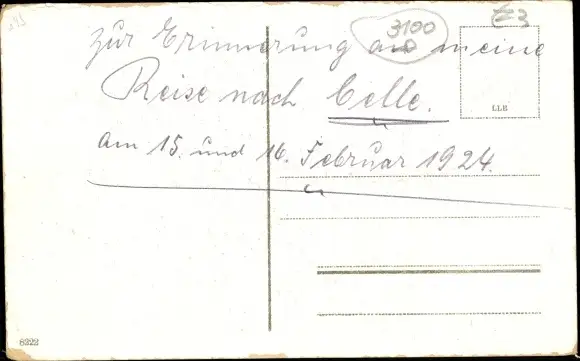 3100
zur Erinnerung an meine
Reise nach Celle.
am 15. und 16. Februar 1924.
LLB
8222